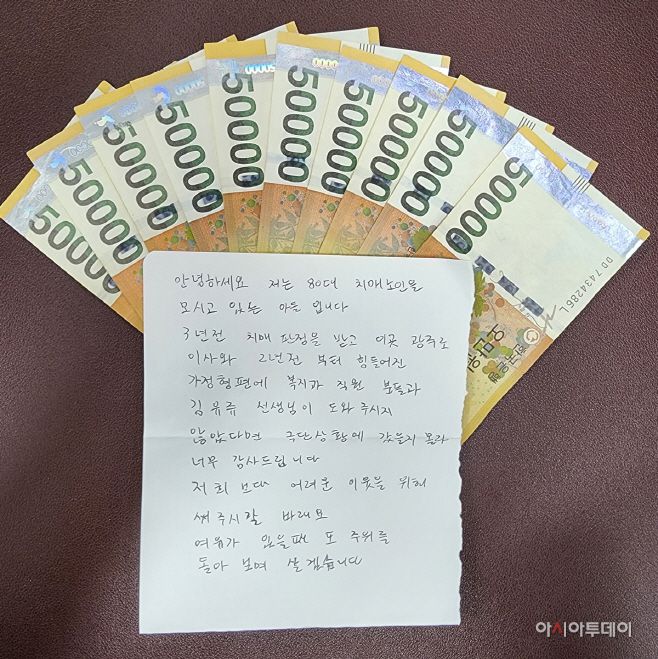 50000
50000
50000
50000
50000
50000
50000
50000
50000
50000
안녕하세요 저는 80대 치매노인을
모시고 있는 아들 입니다
3년전 치매 판정을 받고 이곳 광주로
이사와 2년전 부터 힘들어진
가정형편에 복지가 직원 분들과
김유류 선생님이 도와주시지
않았다면 극단상황에 갔을지 몰라
너무 감사드립니다
저희 보다 어려운 이웃을 위해
써주시길 바래요
여유가 있을때 또 주위를
돌아 보며 살겠습니다
아시아투데이